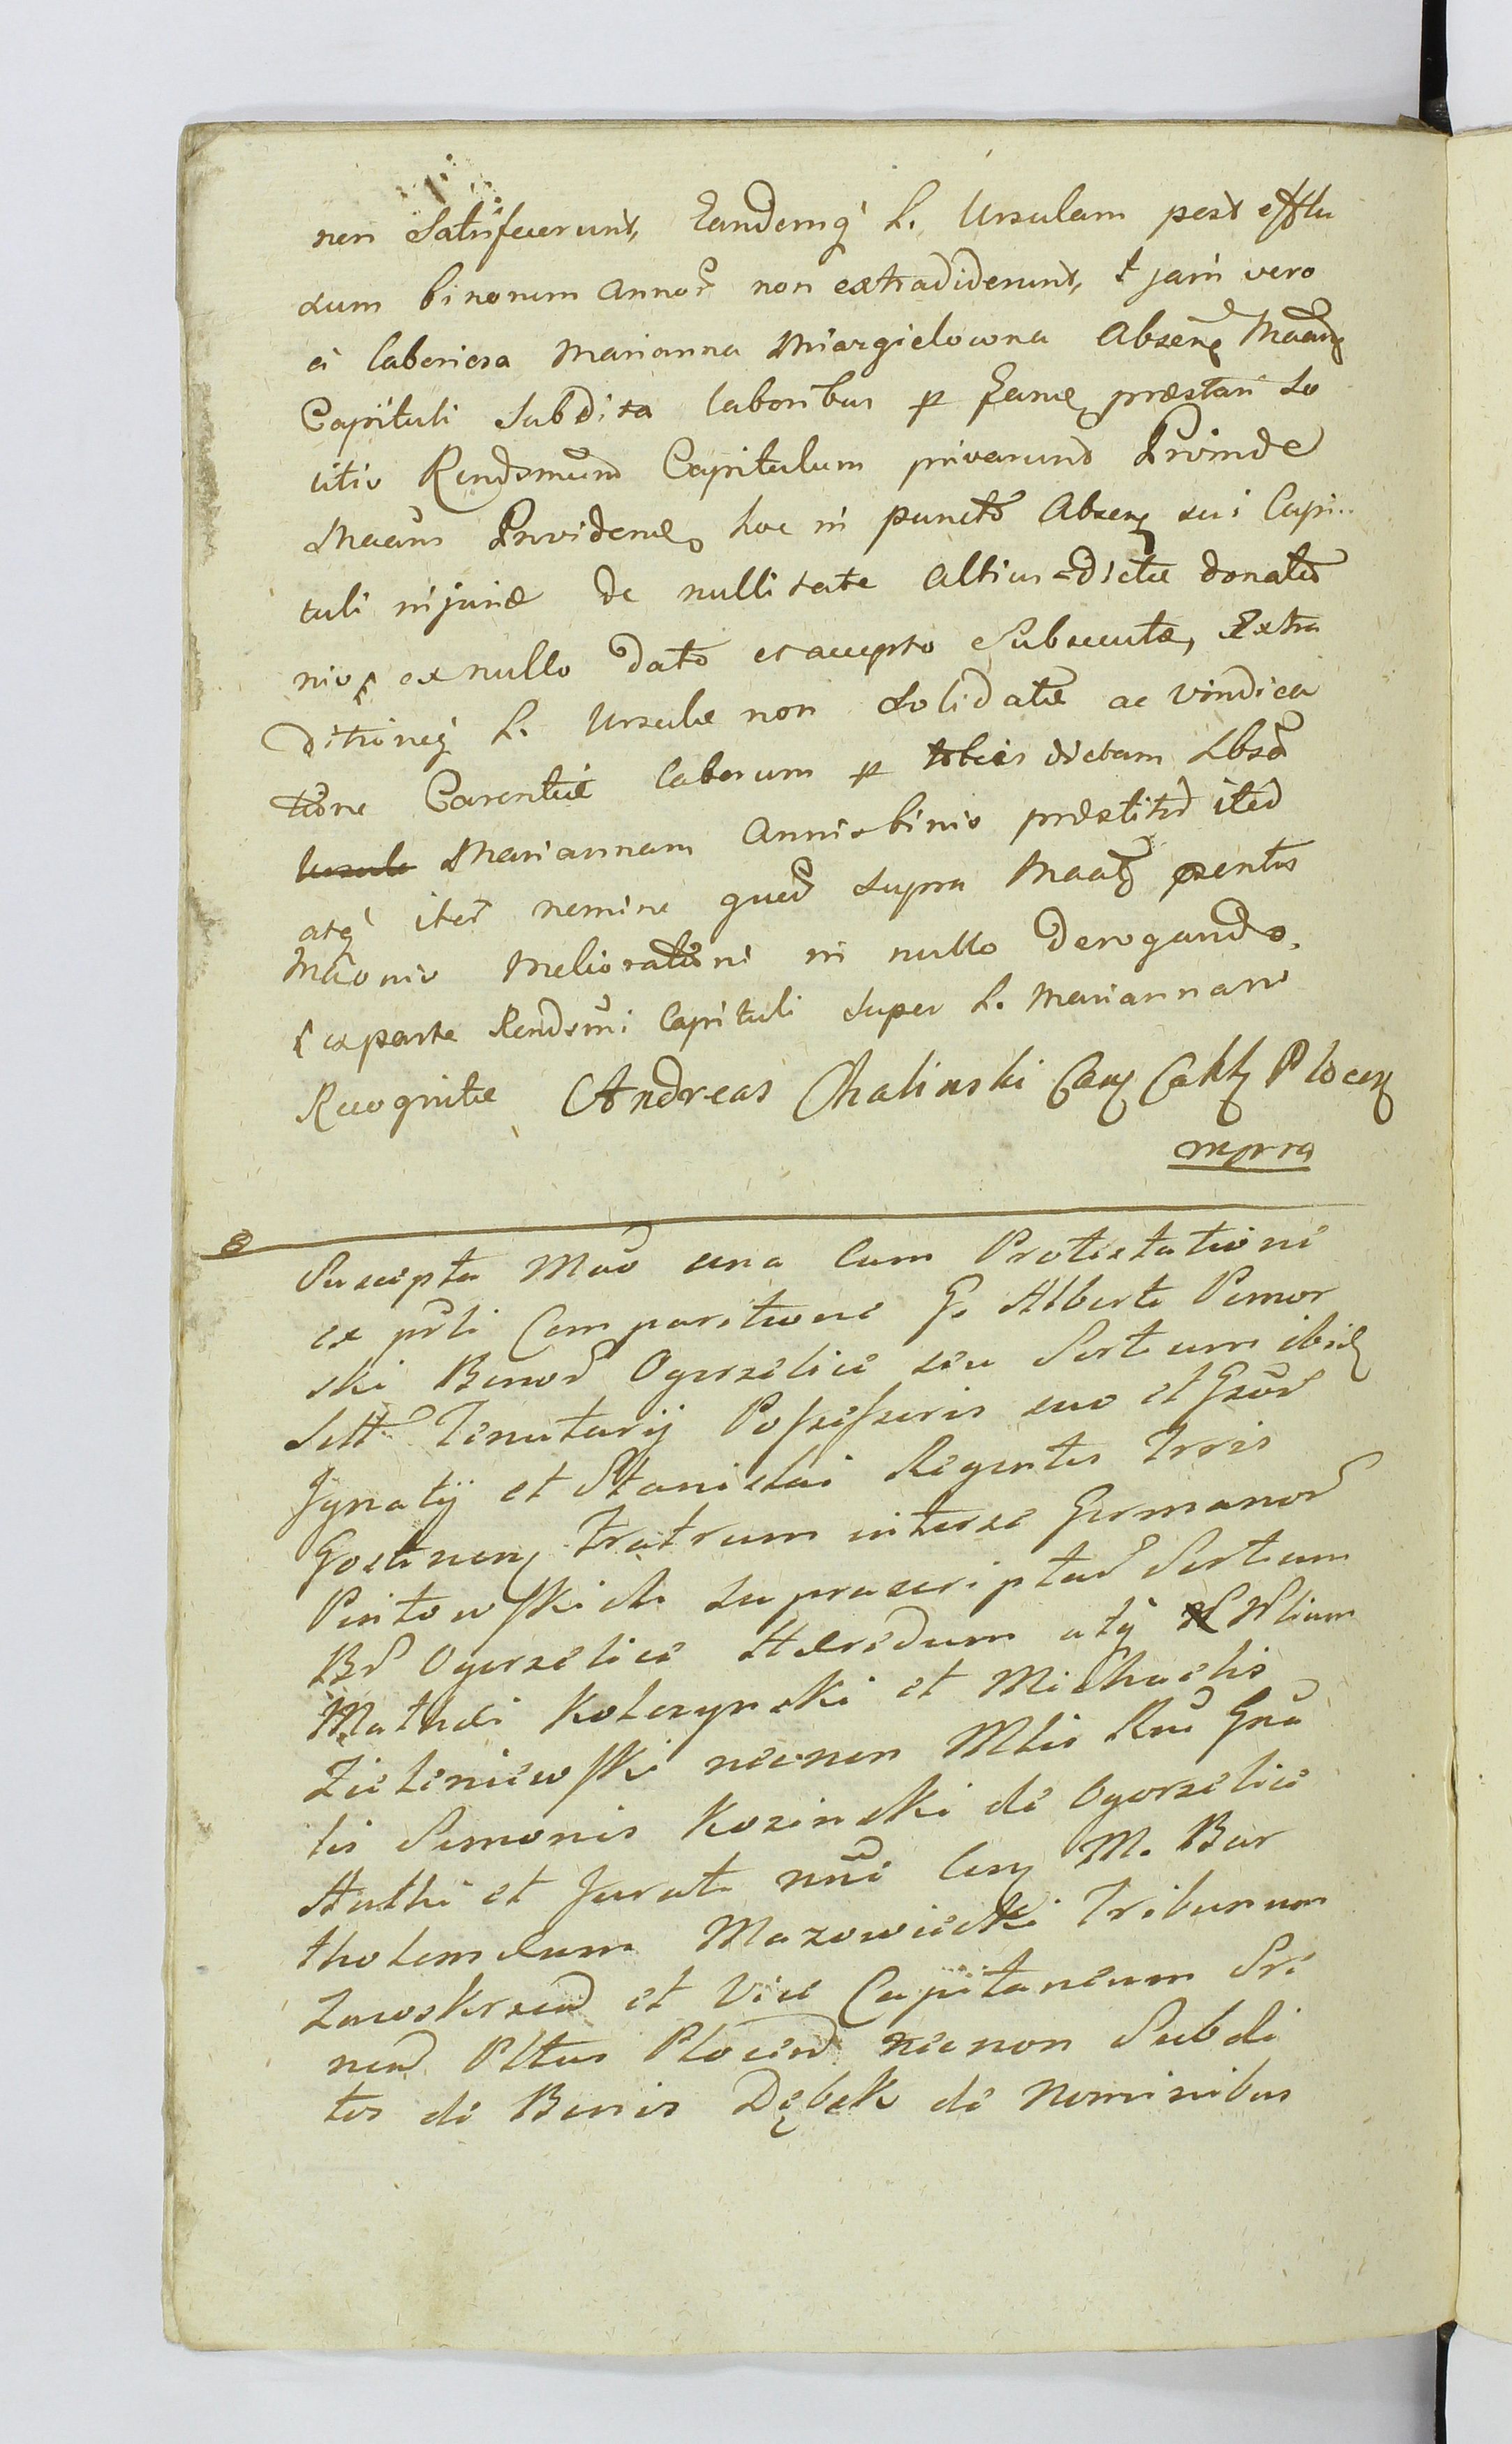 non Satisfecerunt, Eandemq̃ L. Ursulam post efflu
xum binorum annor̃ non extradiderunt, et jam vero
ei laboriosa Marianna Miargielowna Abseñ Maañ
Capituli Subdita laboribus p Eanđ præstari so
litis Rendsmum Capitulum privarunt Proinde
Maans Providenđ hoc in puncto Abseñ sui Capi..
tuli injuriæ de nullitate altius-dictæ donatio
nis ex nullo dato et accepto Subsecutæ, Extra
ditioneq̃ L. Ursulæ non Solidatæ ac vindica
tione Carentiæ laborum p toties dictam Lbsam
Mariannam Annis binis præstitor̃ iteđ
atq̃ iteř nemine queđ supra Maañ pzentis
Mãonis Melioratōni in nullo derogando.
ex parte Rendsmi Capituli super L. Mariannam
Recognitæ Andreas Chalinski Cañ Cathł Plocen
mpria
Suscepta Mão una Cum Protestatione
ex pñti Comparitione G. Alberti Pomor
ski Bonor̃ Ogorzelice seu Sortium ibiđ
Sitt̃ Tenutarij Possessoris suo et Gsor̃
Ignatij et Stanislai Regentis Trris
Gostinen Fratrum interse Germanor̃
Piotowskich supra scriptař Sortium
Bř Ogorzelice Hæredum atq̃ Nłium
Mathæi Kolczynski et Michaelis
Zieleniewski necnon Mlis Rni Gnã
lis Simonis Kozinski de Ogorzelice
Authi et Jurati nñi Con M. Bar
tholomæum Mazowiecki Tribunum
Zawskrzeñ et Vice Capitaneum Sre
neñ Pltus Ploceñ necnon Subdi
tos de Bonis Dębsk de nominibus